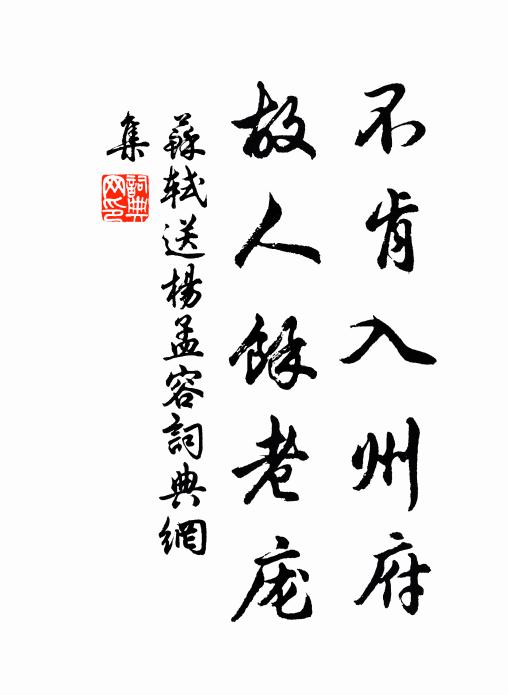 不肯入州府
故人餘老庞
蘇軾送楊孟容詞典網
集
詞典
网印